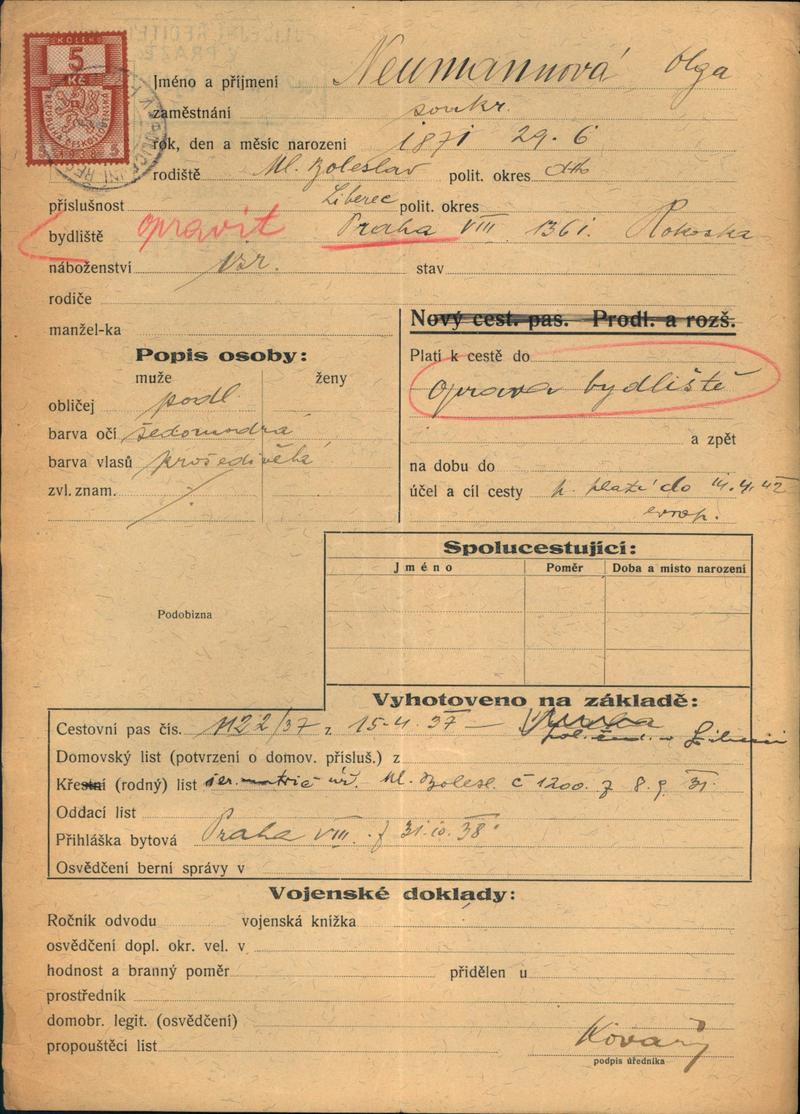 KOLEK
5
Kč
REPUBLIKA ČESKOSLOVENSKÁ
5 1938 5
Jméno a příjmení Neumannová Olga
zaměstnání soukr.
rok, den a měsíc narození 1871 29. 6
rodiště Ml. Boleslav polit. okres dtto
příslušnost Liberec polit. okres
bydliště opravit Praha VIII 1361. Rokoska
náboženství izr. stav
rodiče
manžel-ka
Nový cest. pas. Prodl. a rozš.
Popis osoby:
muže ženy
obličej podl.
barva očí šedomodrá
barva vlasů prošedivělá
zvl. znam.
Platí k cestě do
oprava bydliště
a zpět
na dobu do
účel a cíl cesty p. platí do 14. 4. 42
evrop.
Podobizna
Spolucestující:
Jméno Poměr Doba a místo narození
Vyhotoveno na základě:
Cestovní pas čís. 1122/37 z 15. 4. 37
pol. v Liberci
Domovský list (potvrzení o domov. přísluš.) z
Křestní (rodný) list úř. Ml. Bolesl. č 1200. z 8. 9. 31.
Oddací list
Přihláška bytová Praha VIII. z 31. 10. 38
Osvědčení berní správy v
Vojenské doklady:
Ročník odvodu vojenská knížka
osvědčení dopl. okr. vel. v
hodnost a branný poměr přidělen u
prostředník
domobr. legit. (osvědčení)
propouštěcí list Kovařy
podpis úředníka